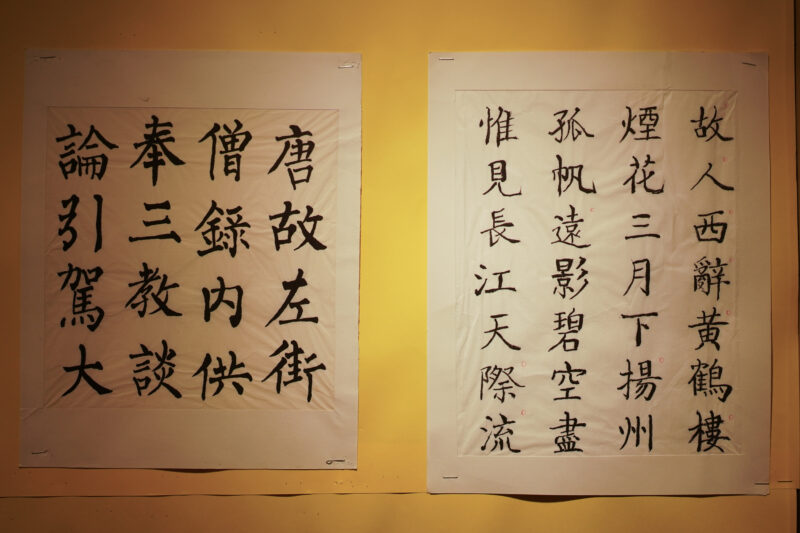 故人西辭黄鶴樓
煙花三月下揚州
孤帆遠影碧空盡
惟見長江天際流
唐故左街
僧錄内供
奉三教談
論引駕大